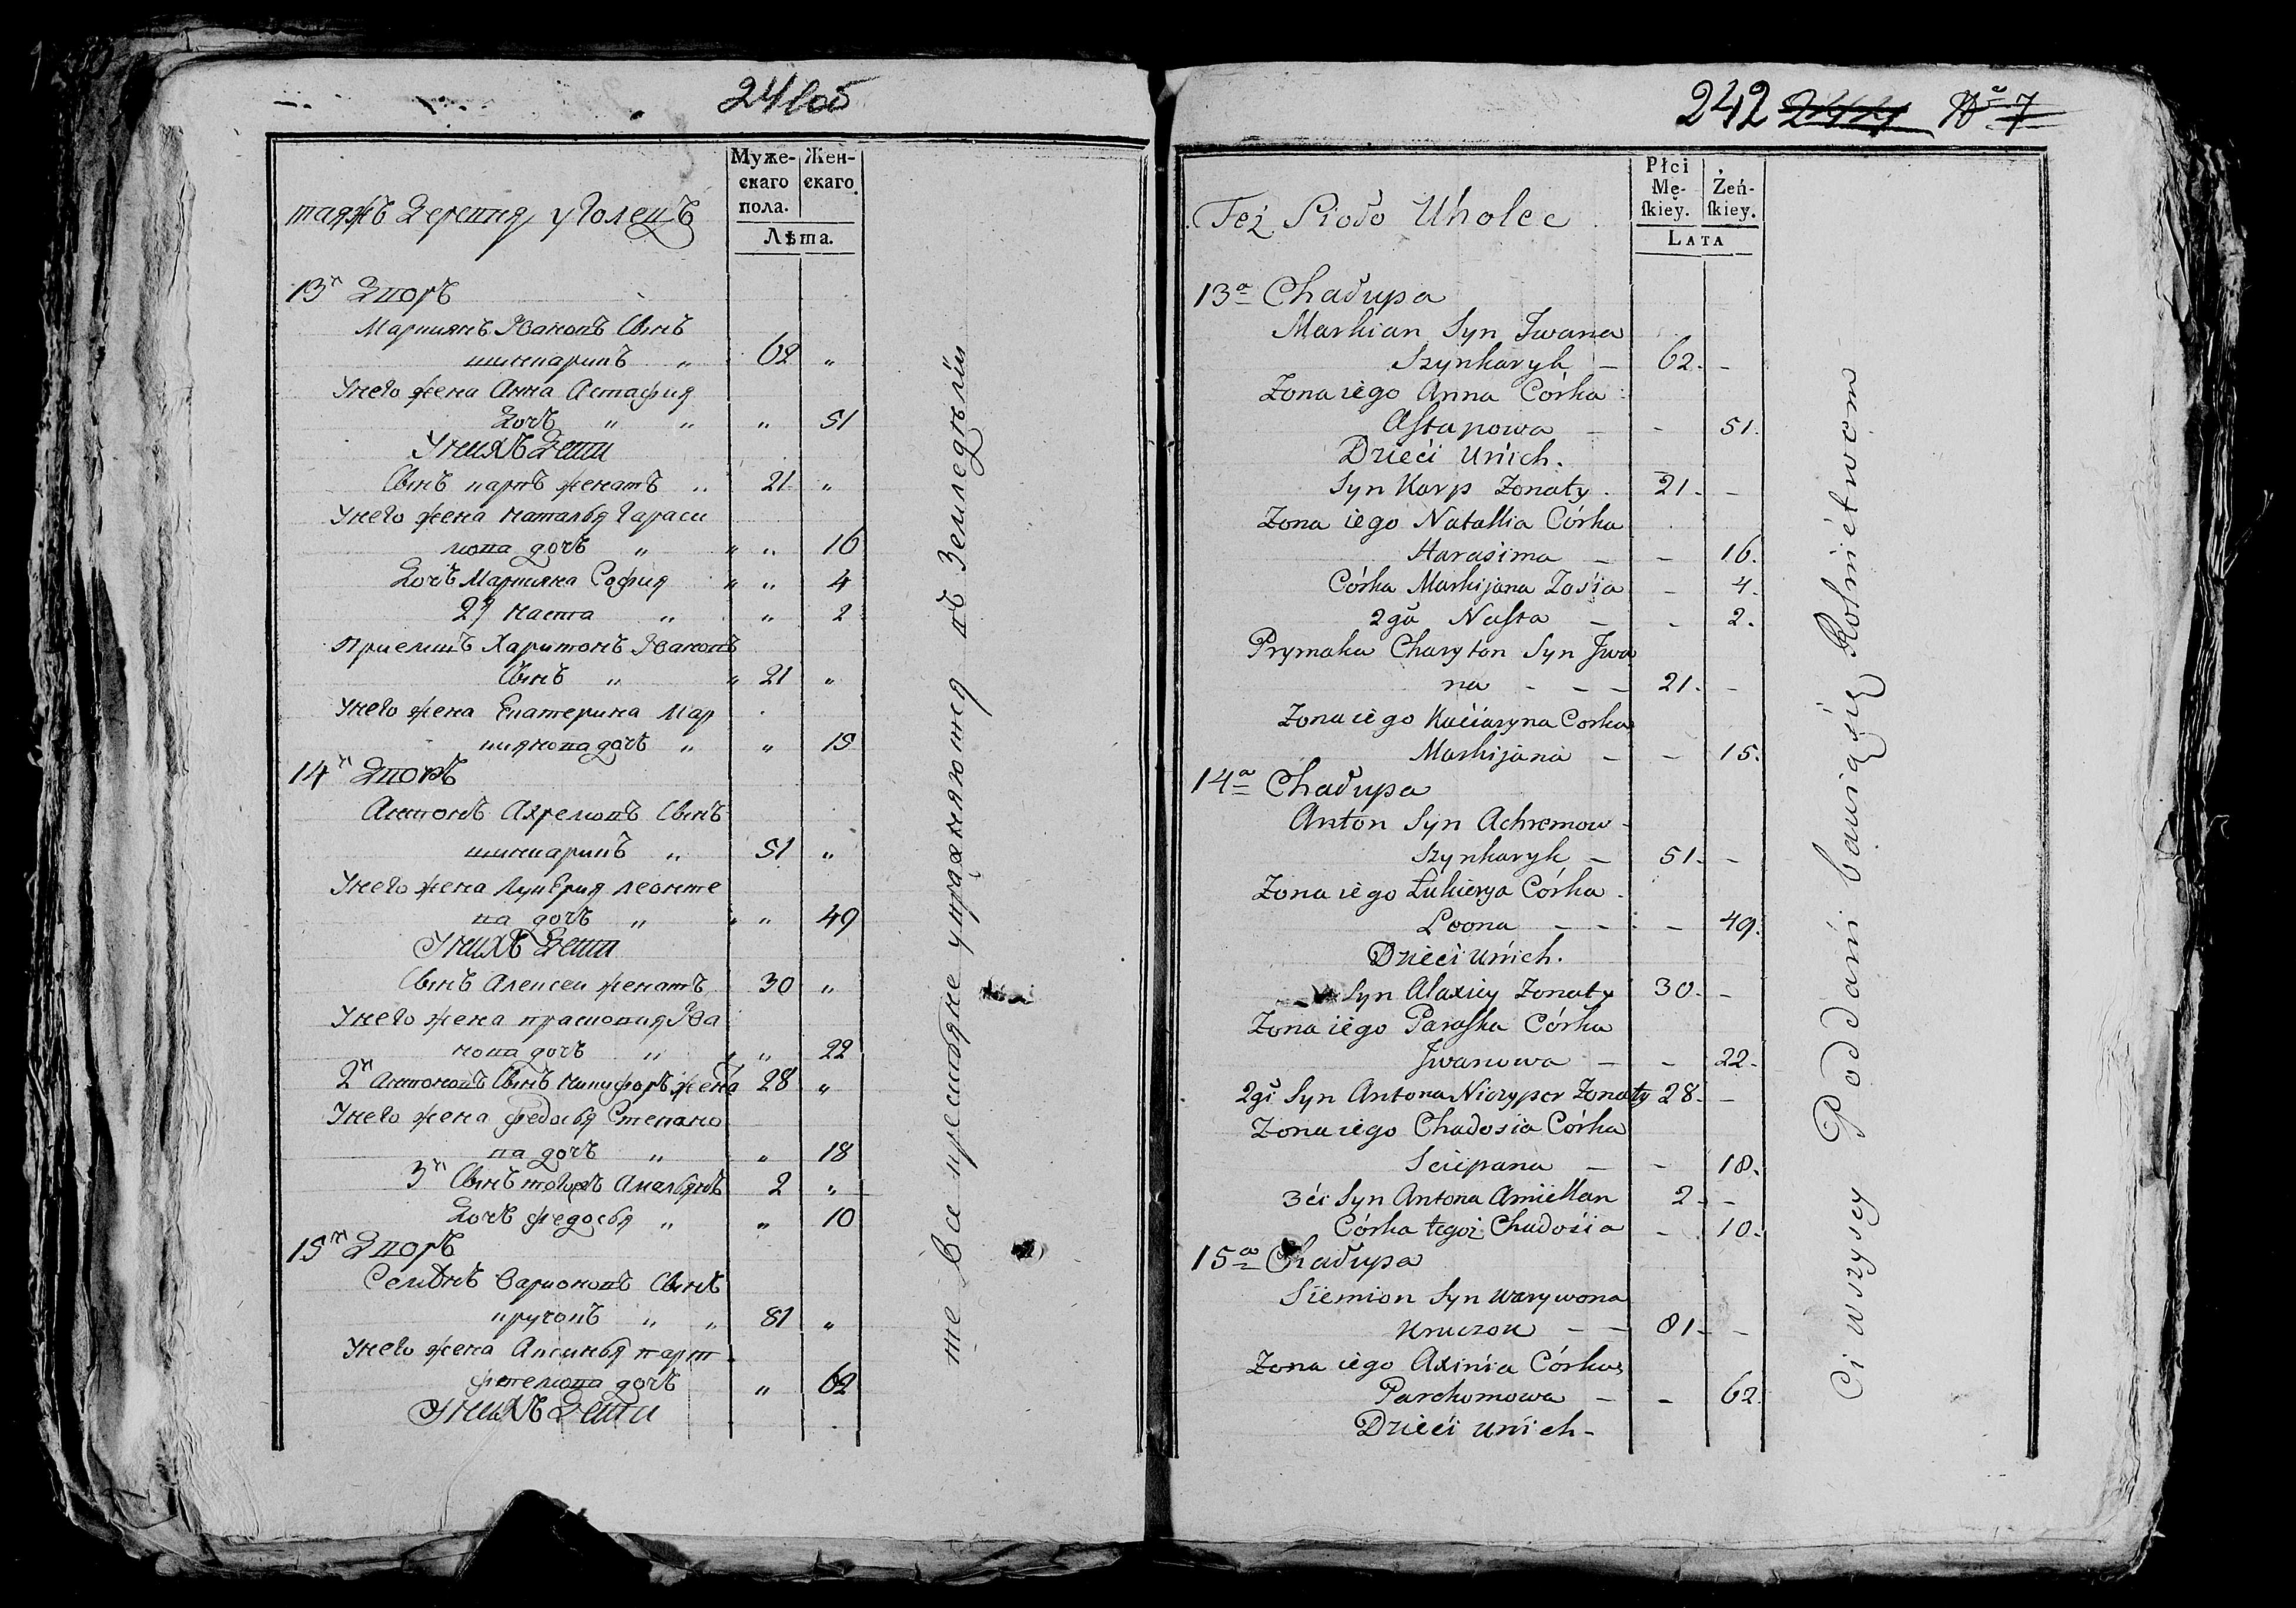 241об
Муже-
скаго
пола.
Жен-
скаго
Лѣта.
таяжъ Деревня уголецъ
13й Дворъ
Маркиянъ Ивановъ Сынъ
шинкарикъ „ 62 „
Унего жена Анна Астафия
Дочь „ „ „ 51
Унихъ Дети
Сынъ карпъ женатъ „ 21 „
Унего жена наталья гараси
мова дочь „ „ „ 16
Дочь Маркияна София „ „ 4
2я наста „ „ 2
Приемшъ Харитонъ Ивановъ
Сынъ „ „ 21 „
Унего жена Екатерина Мар
киянова дочь „ „ 15
14й Дворъ
Антонъ Ахремовъ Сынъ
шинкарикъ „ 51 „
Унего жена лукерия леонте
ва дочь „ „ „ 49
Унихъ Дети
Сынъ Алексеи женатъ 30 „
Унего жена прасковия Ива
нова дочь „ „ „ 22
2й Антоновъ Сынъ никифоръ жена 28 „
Унего жена федосья Степано
ва дочь „ „ 18
3й Сынъ тогожъ Амельянъ 2 „
Дочь федосья „ „ 10
15й Дворъ
Семѣнъ Варионовъ Сынъ
кручокъ „ „ 81 „
Унего жена Аксинья парт
фемова дочь „ 62
Унихъ Дети
те Ва крестьяне упражняются въ Земледѣлiи
242 2414 No 7
Płci
Mę-
ſkiey.
Żeń-
ſkiey.
LATA
Też Sioło Uholec
13a Chałupa
Markian Syn Jwana
Szynkaryk – 62. –
Zona iego Anna Córka
Aſtapowa – – 51.
Dzieći unich.
Syn Karp Zonaty. 21. –
Zona iego Natallia Córka
Harasima – – 16.
Córka Markijana Zosia – 4.
2ga Naſta – – 2.
Prymaka Charyton Syn Jwa
na – – – 21. –
Zona iego Kaćiaryna Corka
Markijana – – 15.
14a Chałupa
Anton Syn Achremow
Szynkaryk – 51. –
Zona iego Łukierya Córka
Loona – – – 49.
Dzieći unich.
Syn Alaxiey Zonaty 30. –
Zona iego Paraſka Córka
Jwanowa – – 22.
2gi Syn Antona Niczypor Zonaty 28. –
Zona iego Chadosia Córka
Sciepana – – 18.
3ći Syn Antona Amiellan 2 –
Córka tegoż Chadośia – 10.
15a Chałupa
Siemion Syn Warywona
Kruczok – – 81. –
Zona iego Axinia Córka
Parchomowa – – 62.
Dzieći unich –
Ci wszyscy Poddani bawią się Rolnictwem